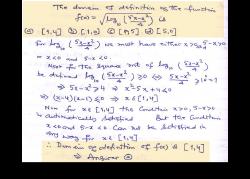 The domain of definition of the function
f(x) = √log₁₀ (5x-x²/4) is
(a) [1,4] (b) [1,0] (c) [0,5] (d) [5,0]
For log₁₀ (5x-x²/4) we must have either x>0, 5-x>0
or x<0 and 5-x<0.
Next for the square root of log₁₀ (5x-x²/4)
be defined log₁₀ (5x-x²/4) ≥0 ⇔ 5x-x²/4 ≥10⁰=1
⇒ 5x-x² ≥ 4 ⇒ x²-5x+4 ≤0
⇒ (x-4)(x-1) ≤0 ⇒ x∈[1,4]
Now for x∈[1,4] the condition x>0, 5-x>0
is automatically satisfied But the condition
x<0 and 5-x<0 can not be satisfied in
any way for x∈[1,4]
∴ Domain of definition of f(x) is [1,4]
⇒ Answer (a)